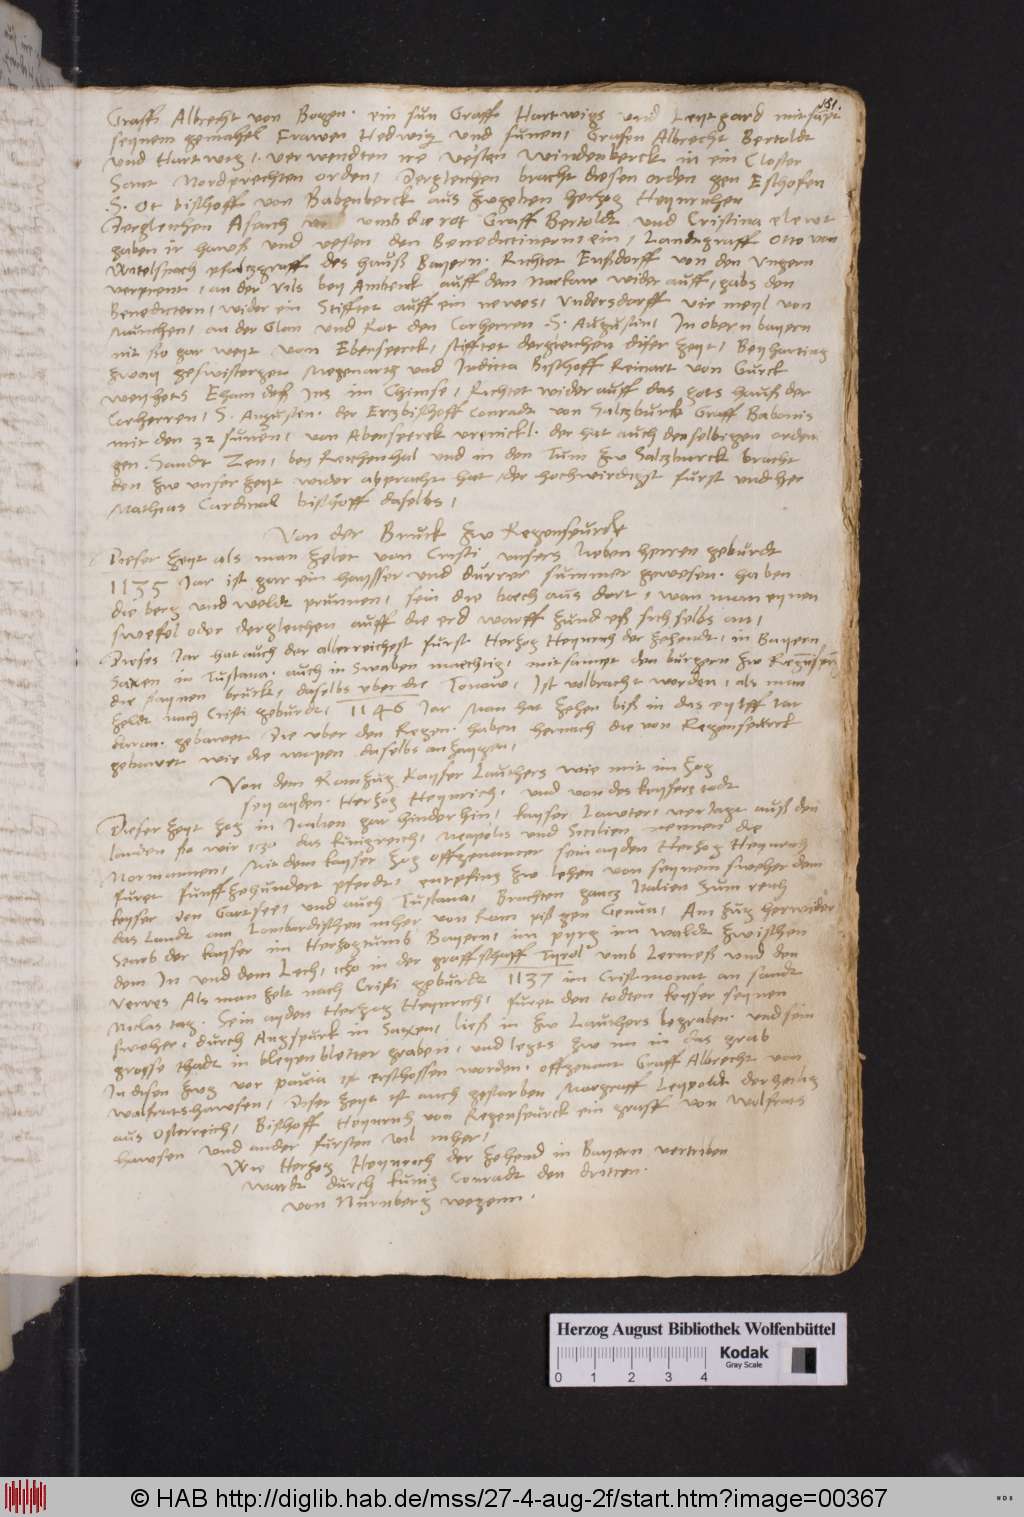 181.
Graff Albrecht von Bogen. ein sun Graff Hartwigs und Leytgard mitsampt
seynem gemahel Frawen Hedwig und sunen, Grafen Albrecht Bertoldt
und Hartwig, verwendten ire vestin Windenberck in ein Closter
Sant Nordprechten orden, Dergleichen bracht diesen orden gen Esthofen
S. Ot bischoff von Babenberck aus zwgeben herzog Heynrichen
Dergleichen Aspach umb die rot Graff Bertoldt und Cristina elewt
gaben ir hawß und vesten den Benedictinern ein, Landtgraff Otto von
Witelspach pfaltzgraff des hauß Bayern. Richtet Enßdorff von den Ungern
verprent, an der Vils bey Amberck auff dem Norkaw wider auff, gabs den
Benedictern, wider ein Stifftet auff ein newes, Undersdorff vir meyl von
Munchen, an der Glon und Rot den Corherren S. Augustin, In obern bayern
nit so gar weyt von Ebenspeerck, stifftet dergleichen diser zeyt, Beyharting
zway geswistergot Megenartz und Judita Bischoff Reinart von Gurck
weyhets Ehamdeß Ins im Chimse, Richtet wider auff das gots hauß der
Corherren, S. Augusten. der Erzbischoff Conradt von Saltzburck Graff Babonis
mit den 32 sunen, von Abensperck urenickl. der hat auch denselbigen orden
gen Sandt Zen, bey Reichenhal und in den Tum zw Salzburck bracht
den zw unser zeyt wider abpracht hat, der hochwirdigst furst und her
Mathias Cardinal bischoff daselbs,
Von der Bruck zw Regenspurck
Dieser zeyt als man zelet von Cristi unsers lieben herren geburdt
1135 Jar ist gar ein haysser und durrer summer gewesen. haben
die berg und weldt prunnen, sein die baech aus dort, wan man eynen
swefel oder dergleichen auff die erd warff zund eß sich selbs an,
Dieses Jar hat auch der allerreichest furst Herzog Heynrich der zehendt, in Bayern
Saxen in Tuscana. auch in Swaben maechtig, mitsampt den burgern zw Regenspurg
die staynen bruck, daselbs uber die Tonaw, Ist volbracht worden, als man
zeldt nach Cristi geburdt, 1146 Jar Man hat zehen biß in das eylfft Jar
daran gebawet Die uber den Regen haben hernach die von Regenspurck
gebawet wie die wapen daselbs anzaygen,
Von dem Romzug Kayser Lauthers wie mit im zog
sey ayden. Herzog Heynrich, und von des keysers todt
Dieser zeyt zog in Italien gar hinder hin, kayser Lawter, verjagt auß den
landen so wir itzo das kunigreich, Neapolis und Sicilien nennen die
Normannen, Mit dem kayser zog offtgenanter sein ayden Herzog Heynrich
furet funffzehundert pferdt, entpfing zw lehen von seynem sweher dem
keyser den Gartsee, und auch Tuscana, Brachten gantz Italien zum reich
das Landt am Lombardischen mher von Rom piß gen Genua, Am zug herwider
Starb der kayser im Herzogtumb Bayern, im pyrg im waldt zwischen
dem In und dem Lech, itzo in der graffschafft Tyrol umb Lermeß und den
Verres Als man zelt nach Cristi geburdt 1137 im Cristmonat an sandt
Niclas tag. Sein ayden Herzog Heynrich, furet den todten keyser seynen
sweher, durch Augspurk in Saxen, ließ in zw Lauthers begraben. und sein
grosse thadt in bleyen bletter graben, und legts zw im in das grab
In disen zwg vor pavia ist erschossen worden. offtgenant Graff Albrecht von
Wolfratshawsen, Diser zeyt ist auch gestorben Margraff Leypoldt der heilig
aus Osterreich, Bischoff Heynrich von Regenspurck ein graff von Wolfrats
hawsen und ander fursten vil mher,
Wie Herzog Heynrich der zehend in Bayern vertriben
wardt durch kunig Conradt den dritten.
von Nurnberg wegenn.
Herzog August Bibliothek Wolfenbüttel
Kodak
Gray Scale
0 1 2 3 4
© HAB http://diglib.hab.de/mss/27-4-aug-2f/start.htm?image=00367